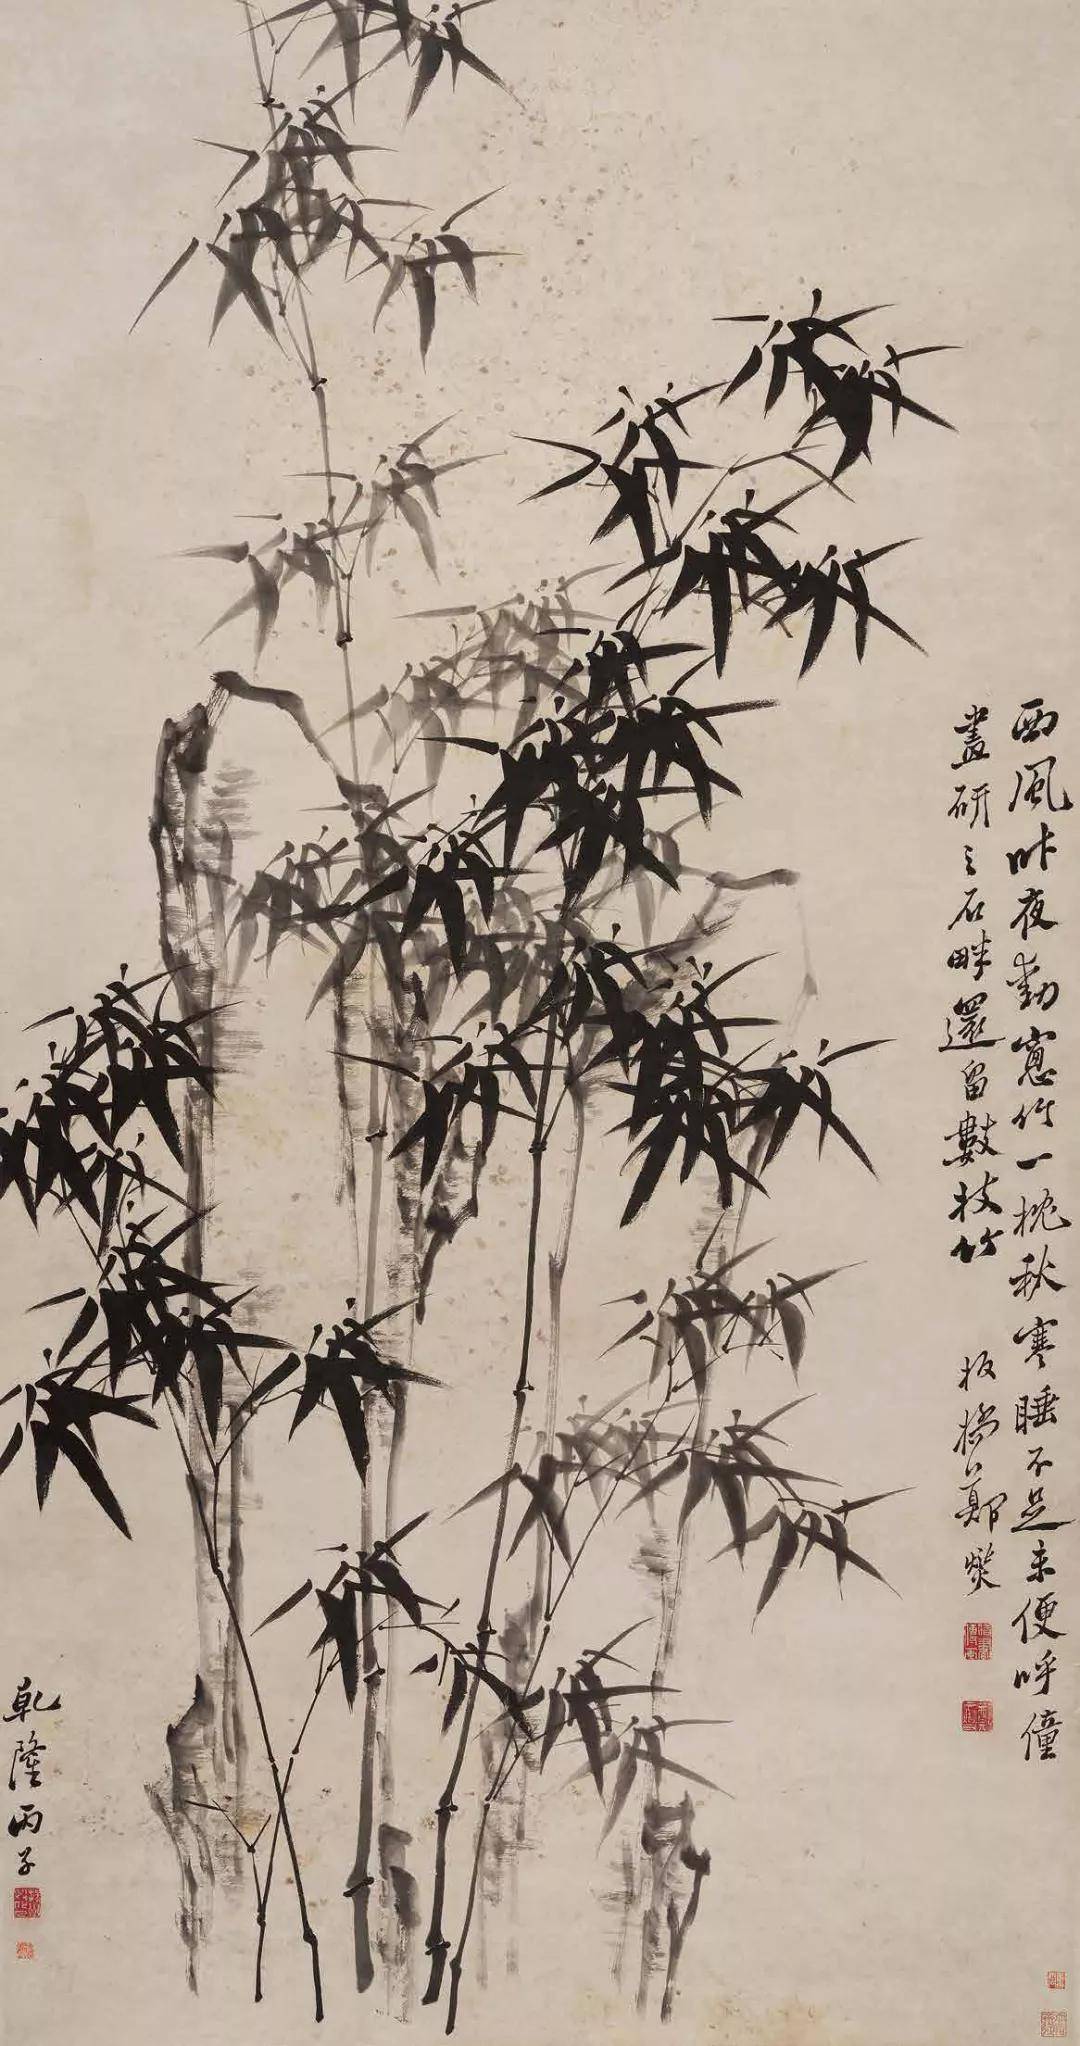 西風昨夜動窻竹一枕秋寒睡不足未便呼僮
盡斫之石畔還留數枝竹
板橋鄭燮
乾隆丙子